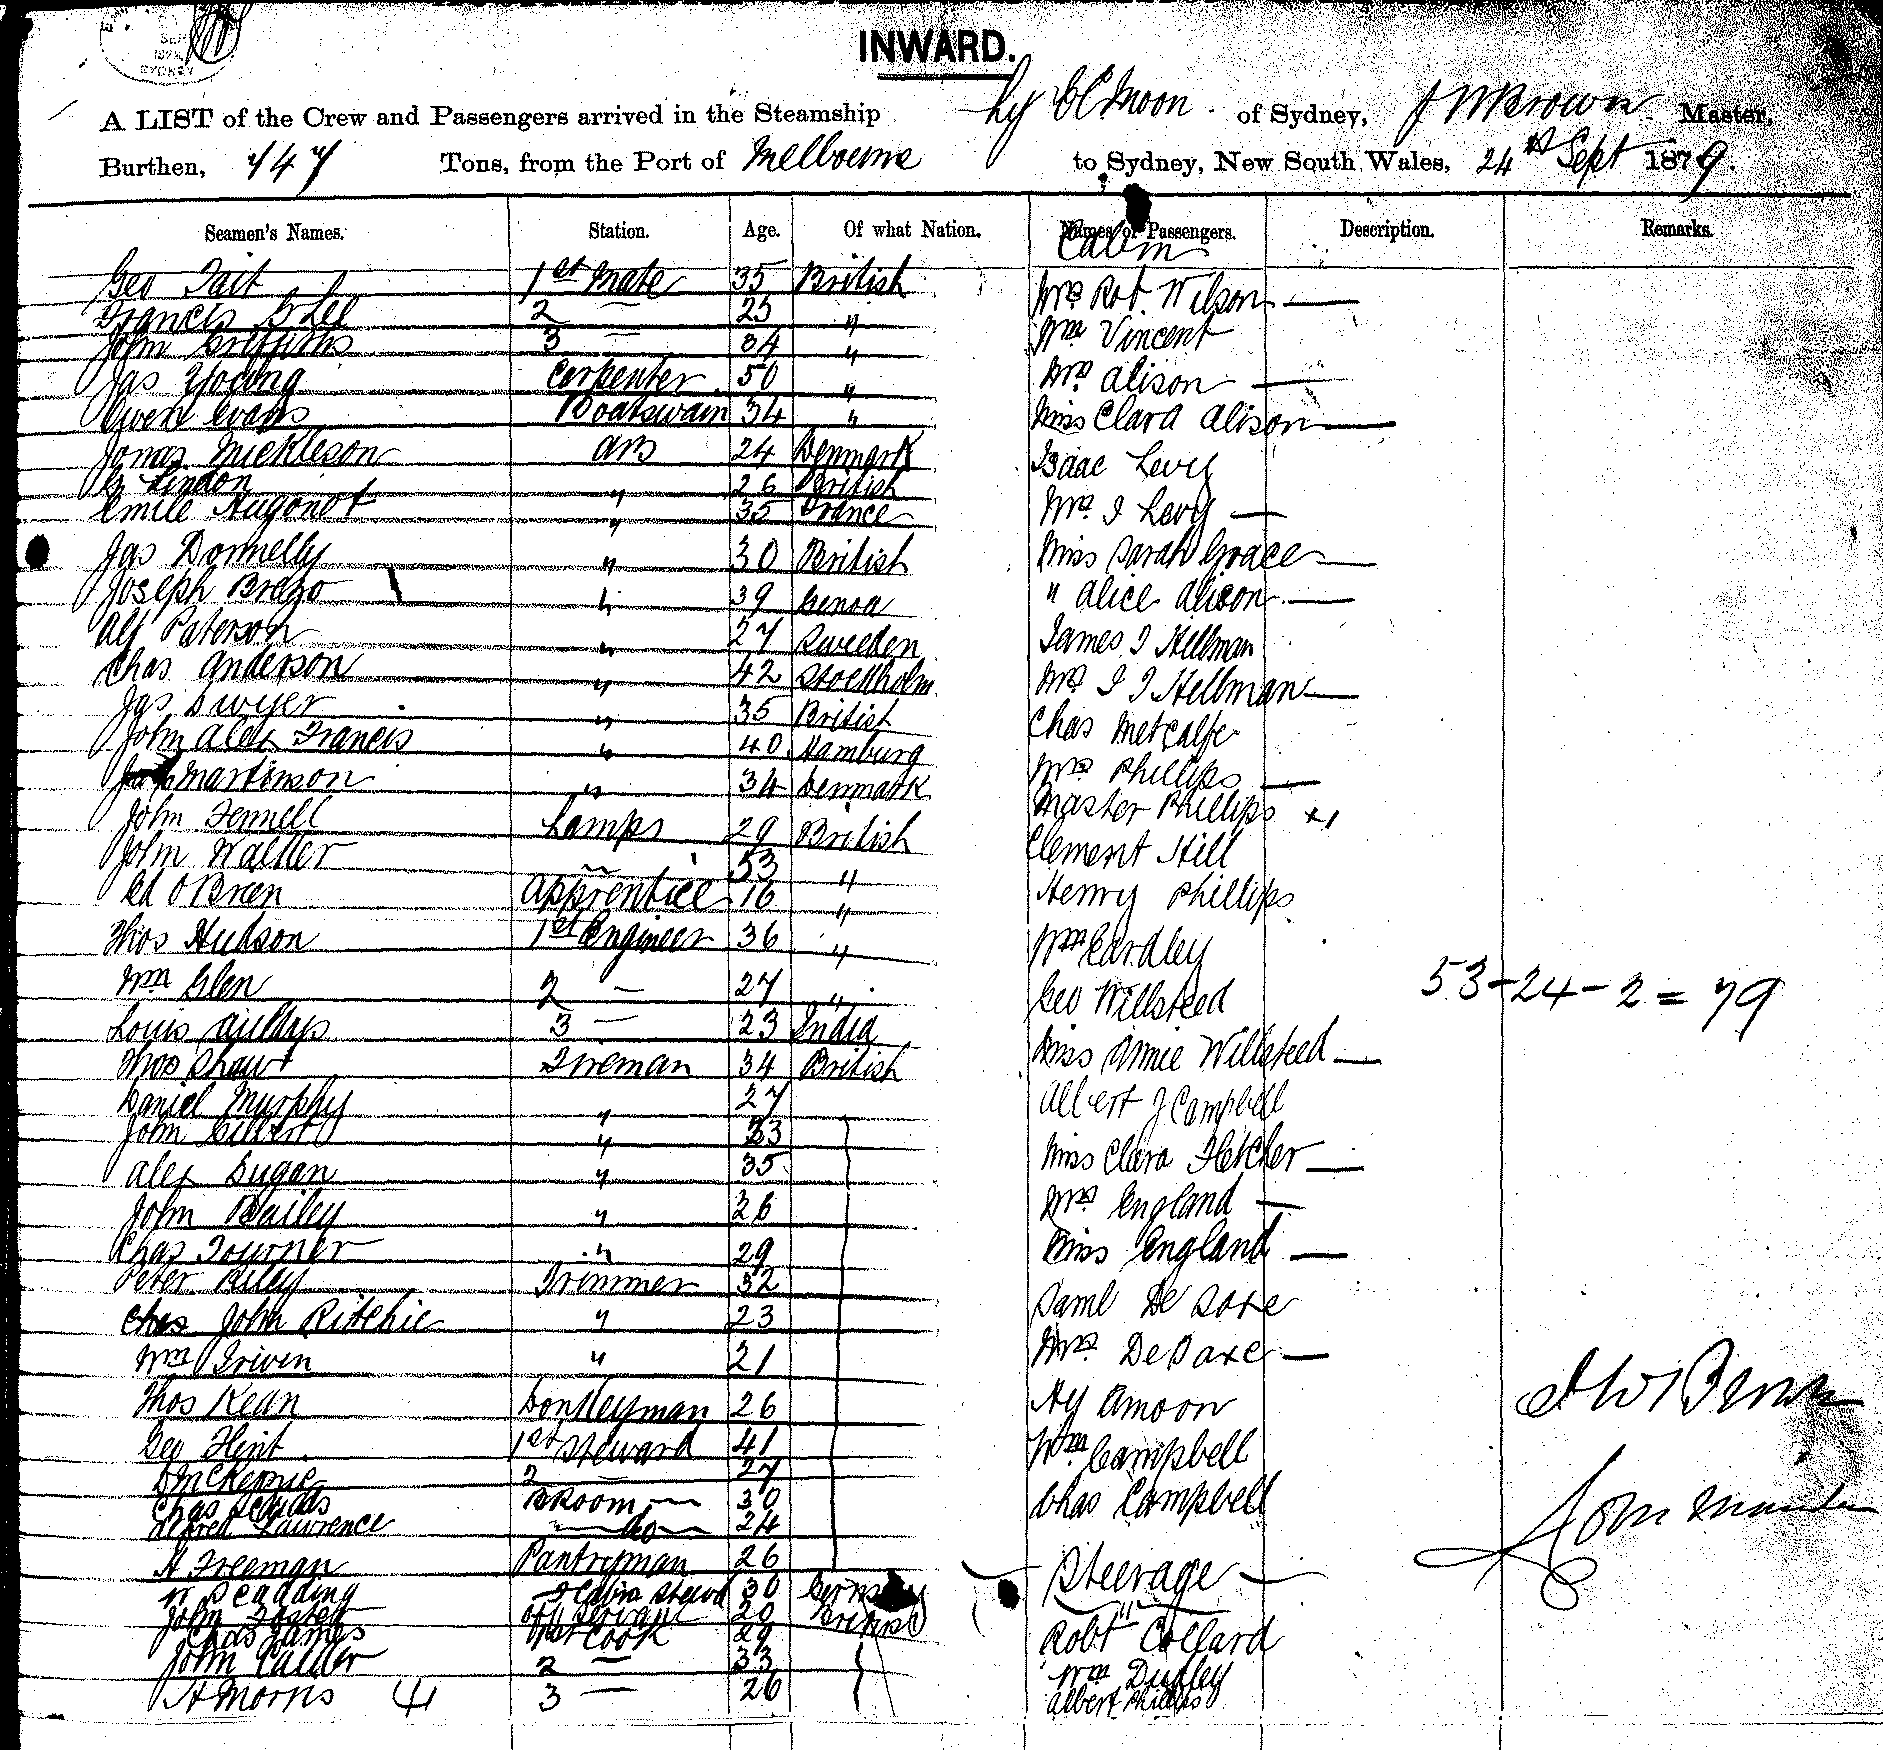 SYDNEY
INWARD.
A LIST of the Crew and Passengers arrived in the Steamship of Sydney, J W Brown Master,
Burthen, 747 Tons, from the Port of Melbourne to Sydney, New South Wales, 24th Sept 1879.
Seamen's Names. Station. Age. Of what Nation. Names of Passengers. Description. Remarks.
Cabin
Geo Tait 1st Mate 35 British Mrs Robt. Wilson —
Francis G Lee 2 — 25 " Wm Vincent
John Griffiths 3 — 34 " Mrs Alison —
Jas Young Carpenter 50 " Miss Clara Alison —
Owen Evans Boatswain 34 "
Jonas Mickleson AB 24 Denmark Isaac Levy
Lindon " 26 British
Emile Hugonot " 35 France Mrs I Levy —
Jas Donnelly " 30 British Miss Sarah Grace —
Joseph Brezo " 39 Genoa " Alice Alison —
Alf Paterson " 27 Sweeden James I Hellman
Chas Anderson " 42 Stockholm Mrs I I Hellman —
Jas Dwyer " 35 British Chas Metcalfe
John Alex Francis " 40 Hamburg
Martinson " 34 Denmark Mrs Phillips —
Master Phillips x1
John Fennell Lamps 29 British Clement Hill
John Walker 53 "
Ed O'Brien Apprentice 16 " Henry Phillips
Thos Hudson 1st Engineer 36 " Wm Eardley
53-24-2=79
Wm Glen 2 — 27 " Geo Willsteed
Louis 3 — 23 India
Thos Shaw Fireman 34 British Miss Annie Willsteed —
Daniel Murphy " 27 Albert J Campbell
John Gilbert " 33
Alex Dugan " 35 Miss Clara Fletcher —
John Bailey " 26 Mrs England —
Chas Tourner " 29 Miss England —
Peter Riley Trimmer 32
Chas John Ritchie " 23 Saml De Saxe
Wm Driven " 21 Mrs. De Saxe —
Thos Kean Donkeyman 26 Hy Amoon
Geo Flint 1st Steward 41 Wm Campbell
D McKenzie 2 — 27
Chas 30 Chas Campbell
Alfred Lawrence — do — 24
H Freeman Pantryman 26 Steerage —
W Deading 30 Germany
John 20 British
Chas James 1st Cook 29 Robt Collard
John Calder 2 — 33 Wm Dudley
H Morris 3 — 26 Albert Phillips
J W Brown